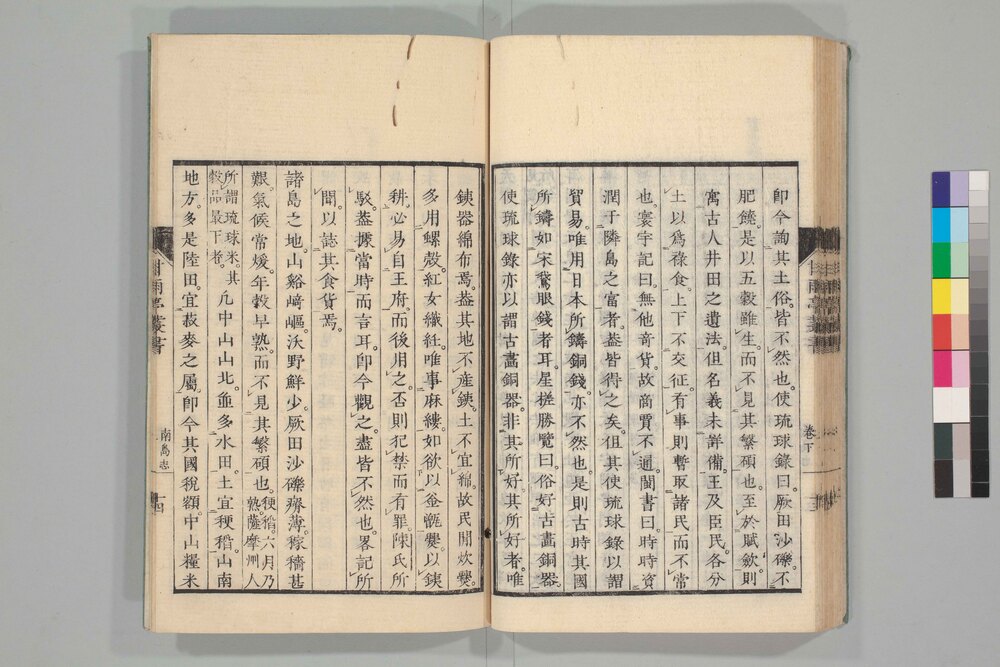 即今詢其土俗。皆不然也。使琉球錄曰。厥田沙礫。不
肥饒。是以五穀雖生。而不見其繁碩也。至於賦斂。則
寓古人井田之遺法。但名義未詳備。王及臣民。各分
土以爲祿食。上下不交征。有事則暫取諸民。而不常
也。寰宇記曰。無他奇貨。故商賈不通。閩書曰。時時資
潤于隣島之富者。葢皆得之矣。但其使琉球錄以謂
貿易。唯用日本所鑄銅錢。亦不然也。是則古時其國
所鑄。如宋鵞眼錢者耳。星槎勝覽曰。俗好古畵銅器。
使琉球錄亦以謂古畵銅器。非其所好。其所好者。唯
鐵器綿布焉。葢其地不產鐵。土不宜綿。故民間炊爨。
多用螺殼。紅女織紝。唯事麻縷。如欲以釜甑爨。以鐵
耕。必易自王府。而後用之。否則犯禁而有罪。陳氏所
駁。葢據當時而言耳。卽今觀之。盡皆不然也。畧記所
聞。以誌其食貨焉。
諸島之地。山谿﨑嶇。沃野鮮少。厥田沙礫瘠薄。稼穡甚
艱。氣候常煖。年穀早熟。而不見其繁碩也。稉稻。六月乃熟。薩摩州人
所謂琉球米。其穀品最下者。凡中山山北。並多水田。土宜稉稻。山南
地方。多是陸田。宜菽麥之屬。卽今其國稅額。中山糧米
甘雨亭叢書
卷下
甘雨亭叢書
南島志
十四